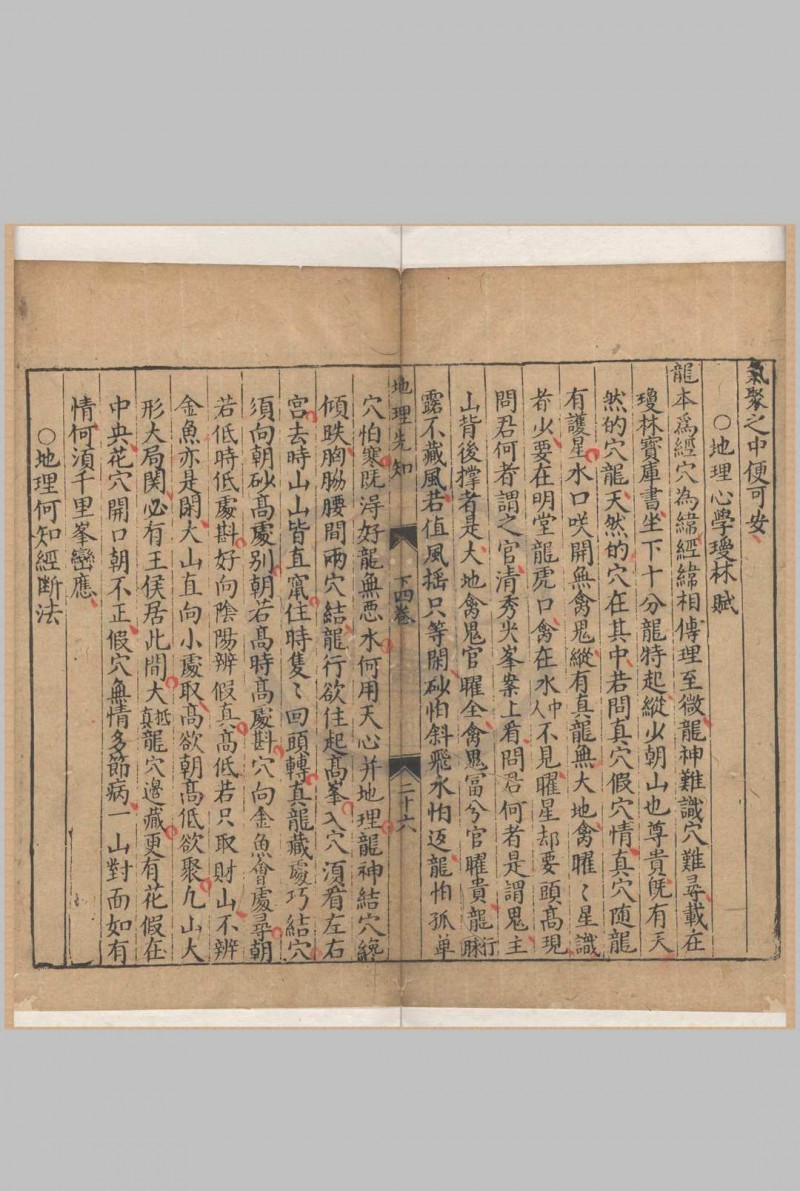 氣聚之中便可安
○地理心學瓊林賦
龍本爲經穴為緯經緯相傳理至微龍神難識穴難尋載在
瓊林寶庫書坐下十分龍特起縱少朝山也尊貴旣有天
然的穴龍天然的穴在其中若問真穴假穴情真穴随龍
有護星水口咲開無禽鬼縱有真龍無大地禽曜〻星識
者少要在明堂龍虎口禽在水中人不見曜星却要頭高現
問君何者謂之官清秀尖峯案上看問君何者是謂鬼主
山背後撑者是大地禽鬼官曜全禽鬼冨兮官曜貴龍行脉
露不藏風若值風揺只等閑砂怕斜飛水怕返龍怕孤单
地理先知
下四卷
二十六
穴怕寒旣淂好龍無悪水何用天心并地理龍神結穴纔
傾跌胸脇腰間兩穴結龍行欲住起髙峯入穴須看左右
宫去時山山皆直竄住時隻〻回頭轉真龍藏處巧結穴
須向朝砂髙處别朝若髙時髙處斟穴向金魚會處尋朝
若低時低處斟好向隂陽辨假真髙低若只取財山不辨
金魚亦是閑大山直向小處取髙欲朝髙低欲聚九山大
形大局関必有王侯居此間大抵真龍穴邉藏更有花假在
中央花穴開口朝不正假穴無情多節病一山對面如有
情何須千里峯巒應
○地理何知經斷法